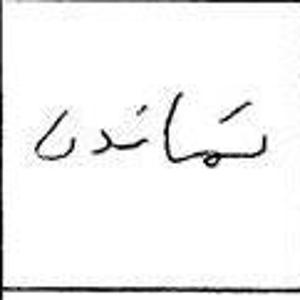 نماندن